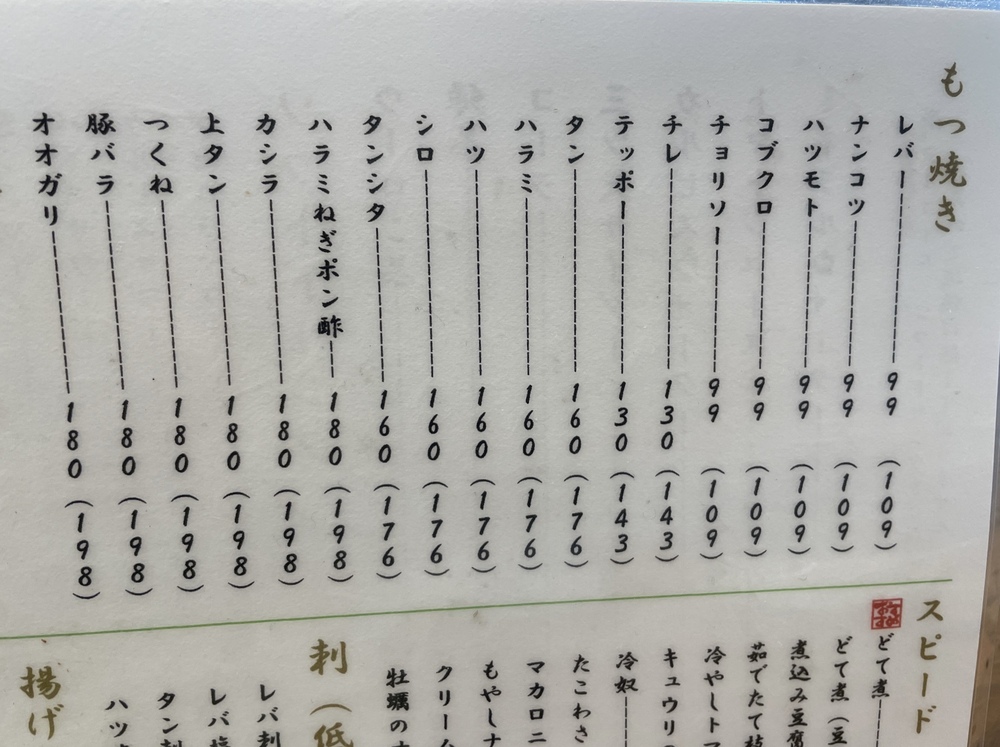 もつ焼き
レバー 99 (109)
ナンコツ 99 (109)
ハツモト 99 (109)
コブクロ 99 (109)
チョリソー 99 (109)
チレ 130 (143)
テッポー 130 (143)
タン 160 (176)
ハラミ 160 (176)
ハツ 160 (176)
シロ 160 (176)
タンシタ 160 (176)
ハラミねぎポン酢 180 (198)
カシラ 180 (198)
上タン 180 (198)
つくね 180 (198)
豚バラ 180 (198)
オオガリ 180 (198)
スピード
どて煮
どて煮(豆
煮込み豆腐
茹でたて枝
冷やしト
キュウリ
冷奴
たこわさ
マカロニ
もやしナ
クリーム
牡蠣の
刺(低
レバ刺
レバ塩
タン刺
ハツ
揚げ